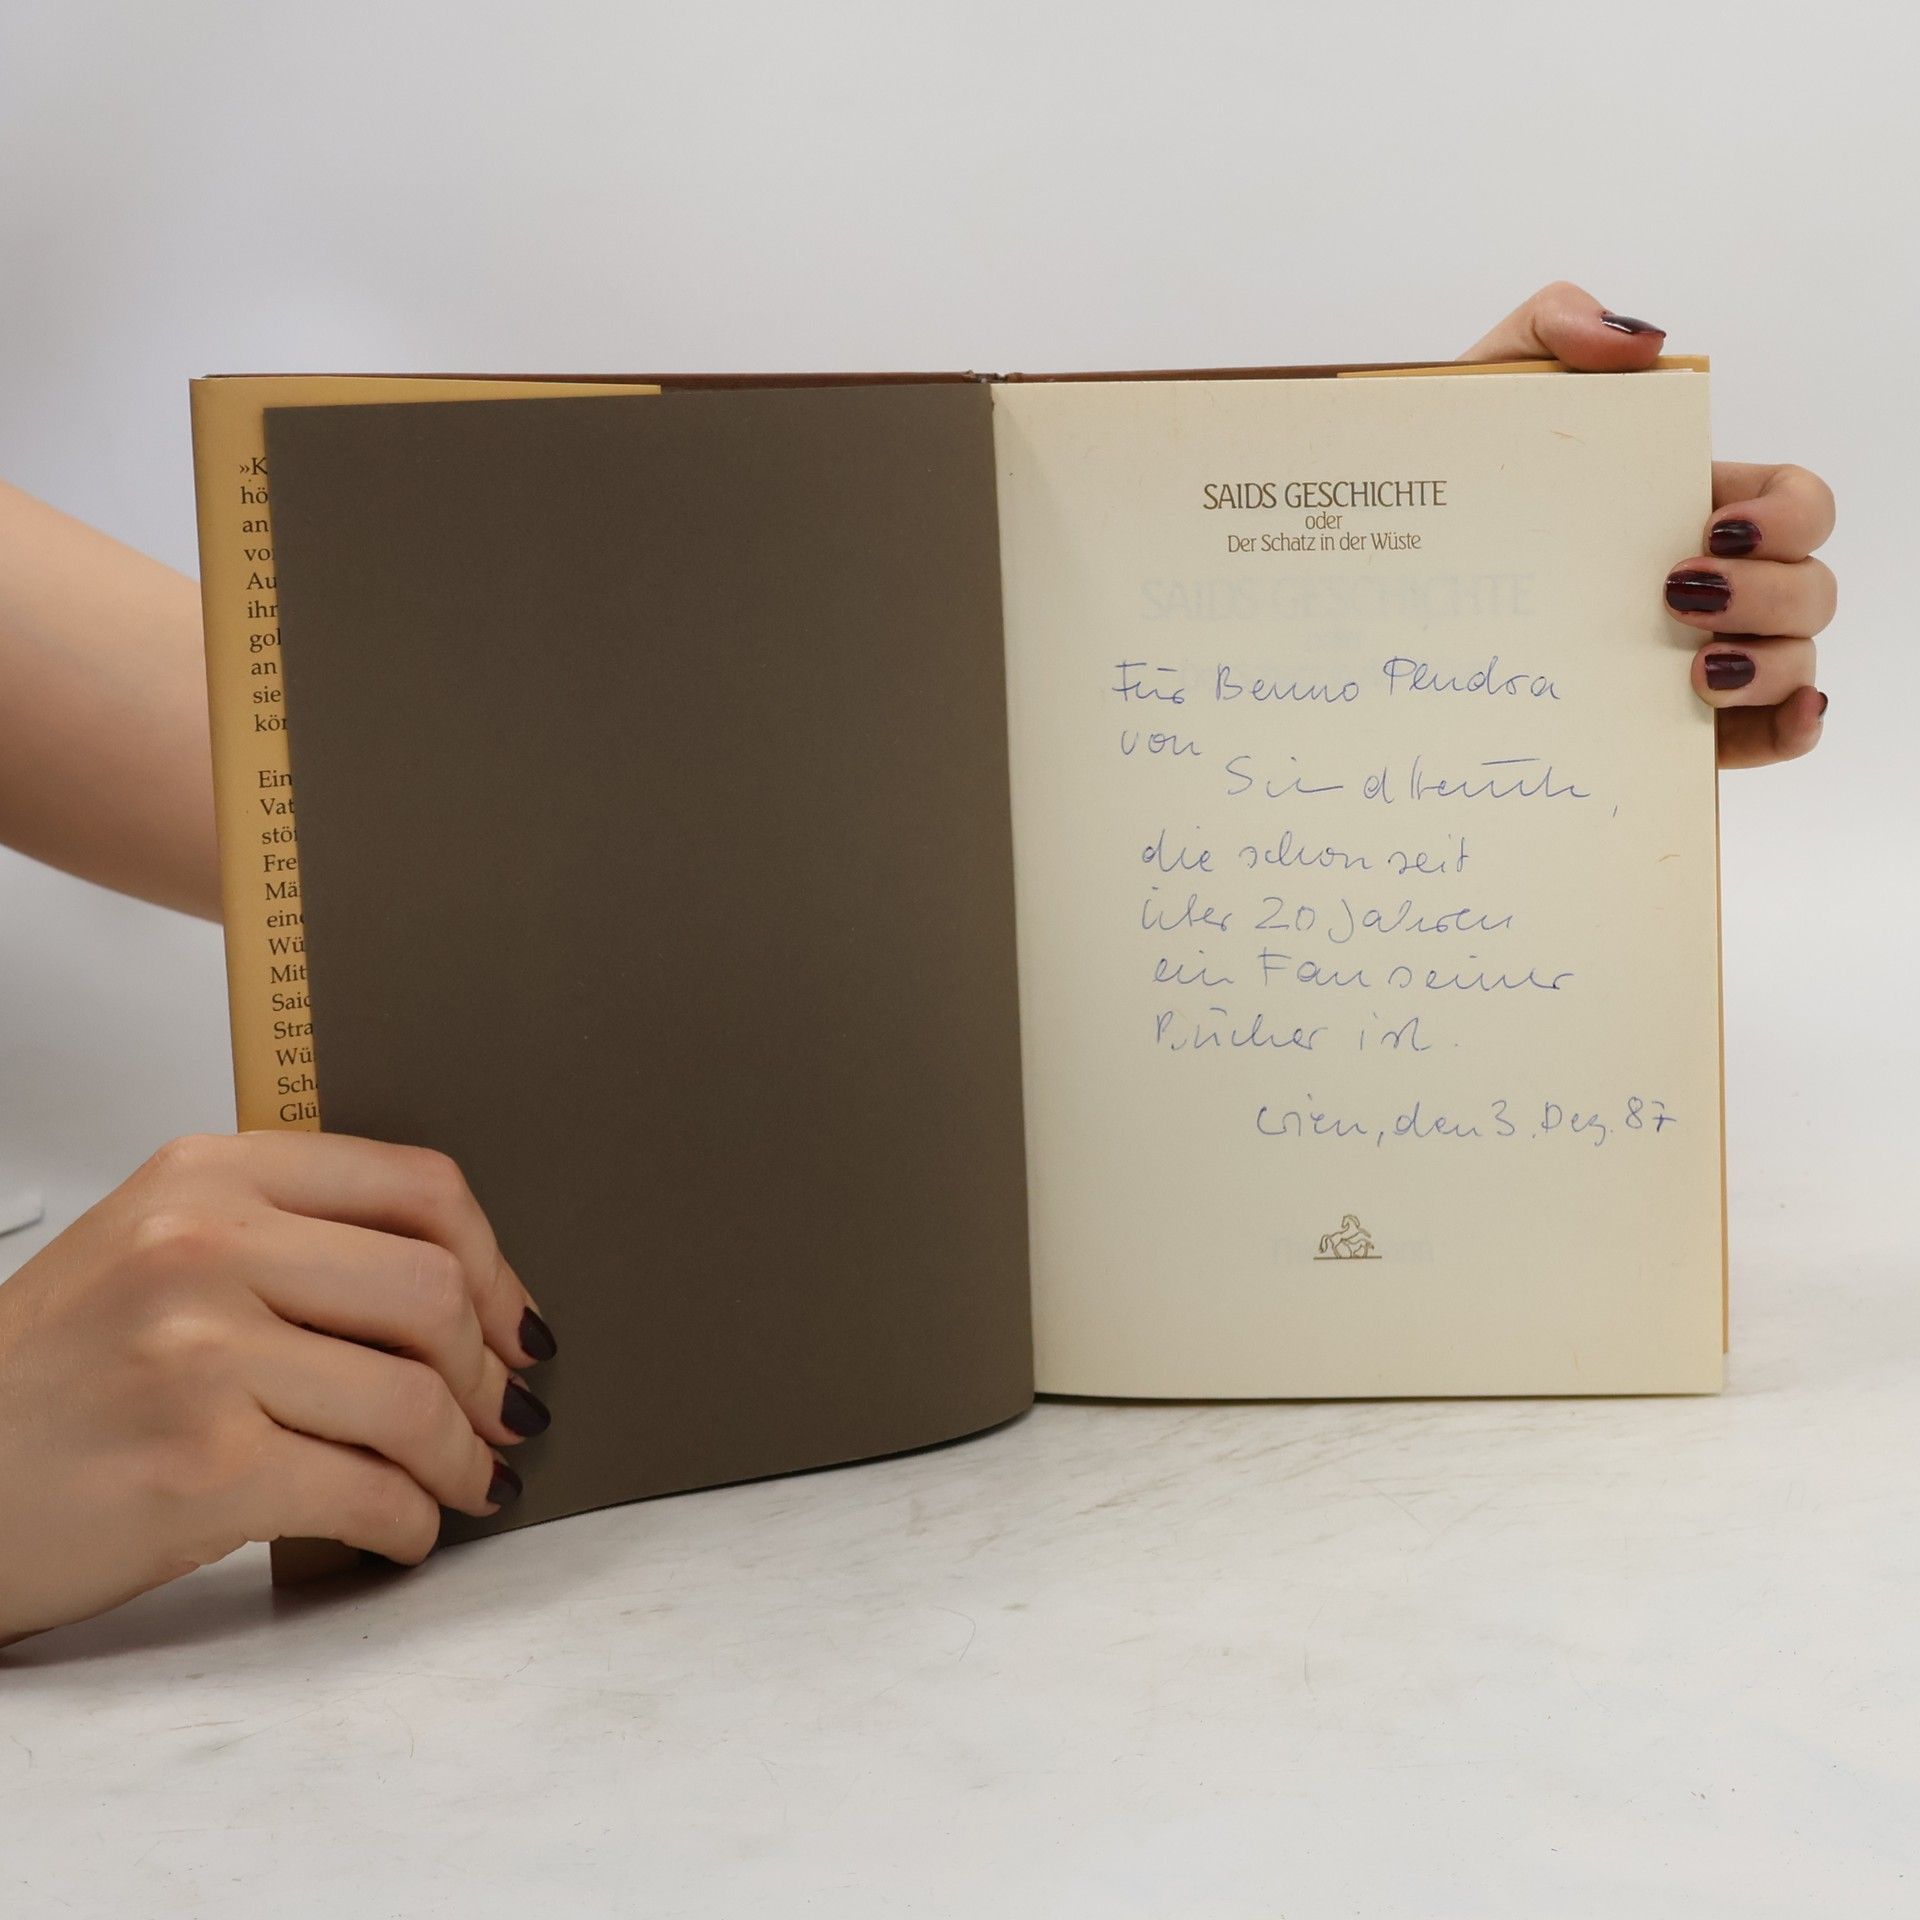 »K
hö
an
vo
Au
ihr
gol
an
sie
kön
Ein
Vat
stö
Fre
Mä
eine
Wü
Mit
Said
Stra
Wü
Sch
Glü
SAIDS GESCHICHTE
oder
Der Schatz in der Wüste
SAIDS GESCHICHTE
Für Benno Pludra
von
die schon seit
über 20 Jahren
ein Fan seiner
Bücher ist.
Wien, den 3. Dez. 87